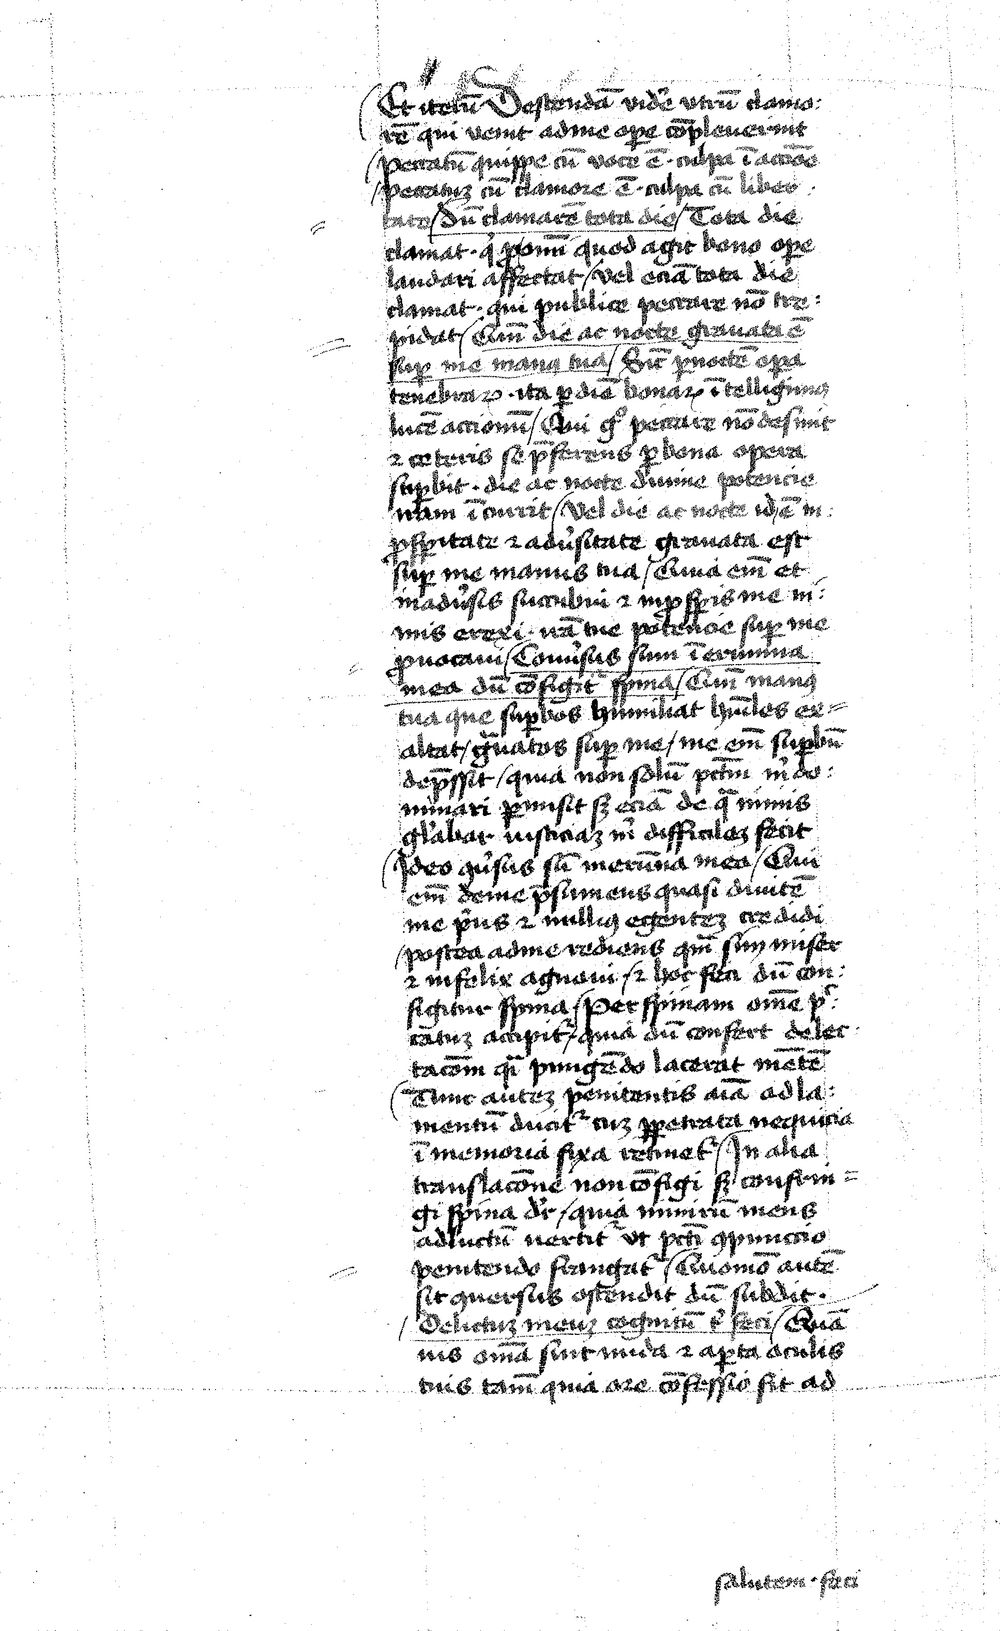 Et iterū Descendā vidē vtrū clamo:
rē qui venit ad me oꝑe cōpleuerint
peccatū quippe cū voce ē · culpa ī accōe
peccatuꝫ cū clamore ē · culpa cū liber:
tate / Dū clamarē tota die / Tota die
clamat · qͥ ꝓ omī quod agit bono oꝑe
laudari affectat / vel eciā tota die
clamat · qui publice peccare nō tre:
pidat / Qm̄ die ac nocte grauata ē
suꝑ me manꝰ tua / Sic̄ ꝑ noctē oꝑa
tenebraꝝ · ita ꝑ diē bonaꝝ ītelligimꝰ
lucē accionū / Qui gͦ peccare nō desinit
⁊ ceteris se p̄ferens ꝑ bona opera
suꝑbit · die ac nocte diuine potencie
iram īcurrit / vel die ac nocte id ē in:
ꝓsꝑitate ⁊ adūsitate grauata est
suꝑ me manus tua / Quia em̄ et
in adūsis succubui ⁊ in ꝓsꝑis me ni:
mis erexi · irā tue potencie suꝑ me
ꝓuocaui / Conūsus sum ī erumna
mea dū cōfigitᷣ spina / Qm̄ manꝰ
tua que suꝑbos humiliat hūiles ex=
altat / gͣuatos suꝑ me / me em̄ suꝑbū
dep̄ssit / quia non solū pctm̄ mͥ do:
minari ꝑmisit sꝫ eciā de qͣ nimis
glͦabar iusticiaꝫ mͥ difficileꝫ fecit
Ideo ꝯūsus sū in erūna mea / Qui
em̄ de me p̄sumens quasi diuitē
me pͥus ⁊ nulliꝰ egenteꝫ credidi
postea ad me rediens qm̄ sum miser
⁊ infelix agnoui / ⁊ hoc feci dū con:
figitur spina / Per spinam om̄e pc:
catuꝫ accipitᷣ / quia dū confert delec:
tacōm qͣi pungēdo lacerat mētē
Tunc auteꝫ penitentis aīa ad la:
mentū ducitᷣ cuꝫ ꝑpetrata nequicia
ī memoria fixa retinetᷣ / In alia
translacōne non cōfigi sꝫ confrin=
gi spina dr̄ / quia nimirū mens
ad luctū vertitᷣ vt pcti ꝯpunccio
penitendo frangatᷣ / Quomō autē
sit ꝯuersus ostendit dū subdit ·
Delictuꝫ meuꝫ cognitū tͥ feci / Quā
uis om̄a sint nuda ⁊ aꝑta oculis
tuis tam̄ quia ore cōfessio fit ad
salutem · feci